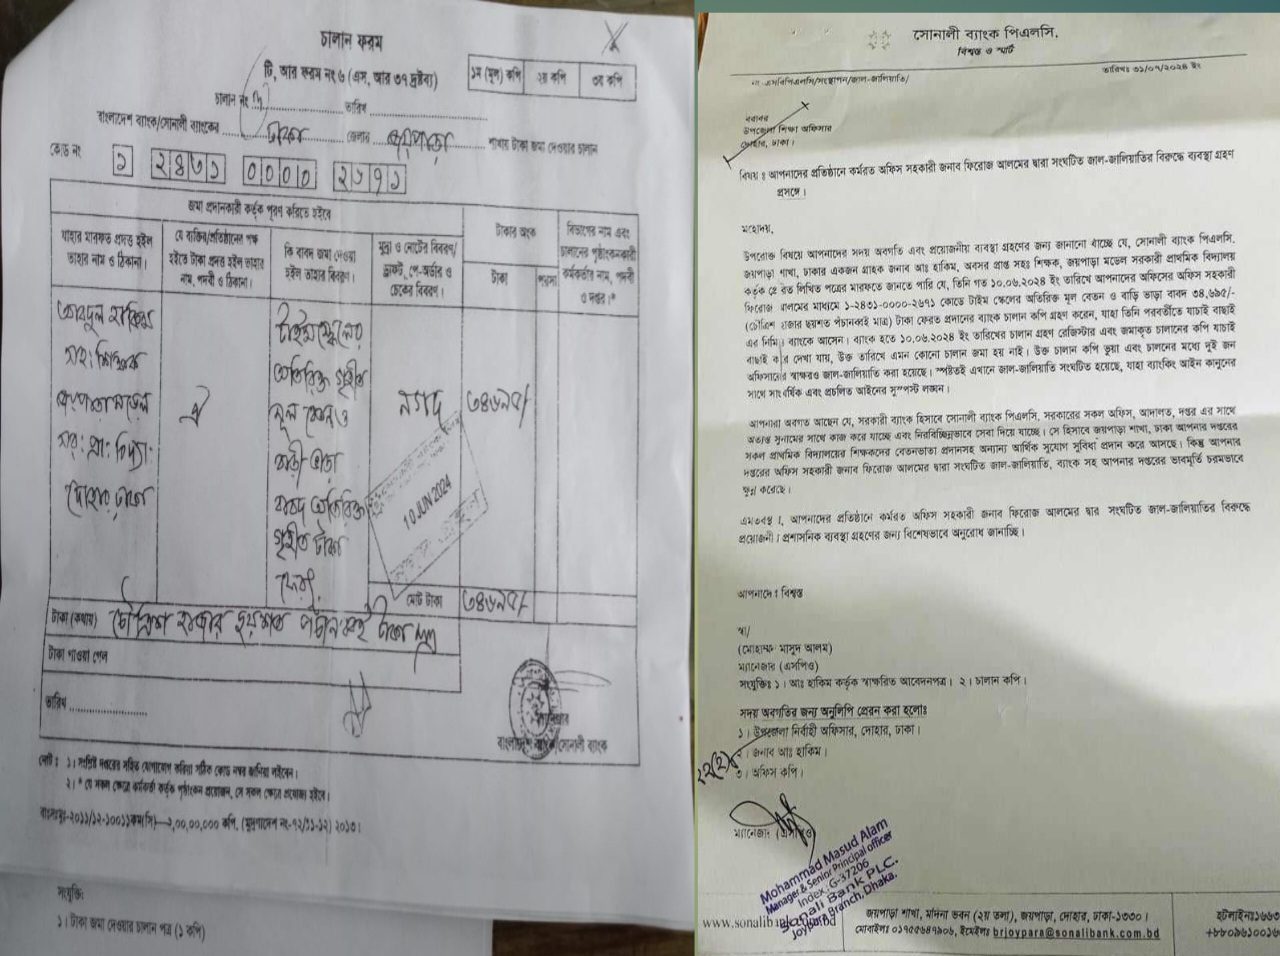 চালান ফরম
টি, আর ফরম নং ৬ (এস, আর ৩৭ দ্রষ্টব্য)
১ম (মূল) কপি ২য় কপি ৩য় কপি
চালান নং ........ তারিখ ........
বাংলাদেশ ব্যাংক/সোনালী ব্যাংকের ঢাকা জেলার জয়পাড়া শাখায় টাকা জমা দেওয়ার চালান
কোড নং ১ ২৪৩১ ০০০০ ২৬৭১
জমা প্রদানকারী কর্তৃক পূরণ করিতে হইবে
টাকার অংক
বিভাগের নাম এবং
চালানের পৃষ্ঠাংকনকারী
কর্মকর্তার নাম, পদবী
ও দপ্তর।*
যাহার মারফত প্রদত্ত হইল
তাহার নাম ও ঠিকানা।
যে ব্যক্তির/প্রতিষ্ঠানের পক্ষ
হইতে টাকা প্রদত্ত হইল তাহার
নাম, পদবী ও ঠিকানা।
কি বাবদ জমা দেওয়া
হইল তাহার বিবরণ।
মুদ্রা ও নোটের বিবরণ/
ড্রাফট, পে-অর্ডার ও
চেকের বিবরণ।
টাকা
পয়সা
আবদুল হাকিম
সহ: শিক্ষক
জয়পাড়া মডেল
সর: প্রা: বিদ্যা:
দোহার, ঢাকা
ঐ
টাইমস্কেলের
অতিরিক্ত গৃহীত
মূল বেতন ও
বাড়ী ভাড়া
বাবদ অতিরিক্ত
গৃহীত টাকা
ফেরৎ
নগদ
৩৪৬৯৫/-
10 JUN 2024
মোট টাকা ৩৪৬৯৫/-
টাকা (কথায়) চৌত্রিশ হাজার ছয়শত পঁচানব্বই টাকা মাত্র
টাকা পাওয়া গেল
তারিখ ........
ম্যানেজার
বাংলাদেশ ব্যাংক/সোনালী ব্যাংক
নোট : ১। সংশ্লিষ্ট দপ্তরের সহিত যোগাযোগ করিয়া সঠিক কোড নম্বর জানিয়া লইবেন।
২। * যে সকল ক্ষেত্রে কর্মকর্তা কর্তৃক পৃষ্ঠাংকন প্রয়োজন, সে সকল ক্ষেত্রে প্রযোজ্য হইবে।
সংযুক্তি:
১। টাকা জমা দেওয়ার চালান পত্র (১ কপি)
সোনালী ব্যাংক পিএলসি.
বিশ্বস্ত ও স্মার্ট
এসবিপিএলসি/সংস্থাপন/জাল-জালিয়াতি/
তারিখঃ ৩১/০৭/২০২৪ ইং
বরাবর
উপজেলা শিক্ষা অফিসার
দোহার, ঢাকা।
বিষয় ঃ আপনাদের প্রতিষ্ঠানে কর্মরত অফিস সহকারী জনাব ফিরোজ আলমের দ্বারা সংঘটিত জাল-জালিয়াতির বিরুদ্ধে ব্যবস্থা গ্রহণ
প্রসঙ্গে।
মহোদয়,
উপরোক্ত বিষয়ে আপনাদের সদয় অবগতি এবং প্রয়োজনীয় ব্যবস্থা গ্রহণের জন্য জানানো যাচ্ছে যে, সোনালী ব্যাংক পিএলসি.
জয়পাড়া শাখা, ঢাকার একজন গ্রাহক জনাব আঃ হাকিম, অবসর প্রাপ্ত সহঃ শিক্ষক, জয়পাড়া মডেল সরকারী প্রাথমিক বিদ্যালয়
কর্তৃক প্রেরিত লিখিত পত্রের মারফতে জানতে পারি যে, তিনি গত ১০.০৬.২০২৪ ইং তারিখে আপনাদের অফিসের অফিস সহকারী
ফিরোজ আলমের মাধ্যমে ১-২৪৩১-০০০০-২৬৭১ কোডে টাইম স্কেলের অতিরিক্ত মূল বেতন ও বাড়ি ভাড়া বাবদ ৩৪,৬৯৫/-
(চৌত্রিশ হাজার ছয়শত পঁচানব্বই মাত্র) টাকা ফেরত প্রদানের ব্যাংক চালান কপি গ্রহণ করেন, যাহা তিনি পরবর্তীতে যাচাই বাছাই
এর নিমিত্ত ব্যাংকে আসেন। ব্যাংক হতে ১০.০৬.২০২৪ ইং তারিখের চালান গ্রহণ রেজিস্টার এবং জমাকৃত চালানের কপি যাচাই
বাছাই করে দেখা যায়, উক্ত তারিখে এমন কোনো চালান জমা হয় নাই। উক্ত চালান কপি ভুয়া এবং চালানের মধ্যে দুই জন
অফিসারের স্বাক্ষরও জাল-জালিয়াতি করা হয়েছে। স্পষ্টতই এখানে জাল-জালিয়াতি সংঘটিত হয়েছে, যাহা ব্যাংকিং আইন কানুনের
সাথে সাংঘর্ষিক এবং প্রচলিত আইনের সুস্পষ্ট লঙ্ঘন।
আপনারা অবগত আছেন যে, সরকারী ব্যাংক হিসাবে সোনালী ব্যাংক পিএলসি, সরকারের সকল অফিস, আদালত, দপ্তর এর সাথে
অত্যন্ত সুনামের সাথে কাজ করে যাচ্ছে এবং নিরবিচ্ছিন্নভাবে সেবা দিয়ে যাচ্ছে। সে হিসাবে জয়পাড়া শাখা, ঢাকা আপনার দপ্তরের
সকল প্রাথমিক বিদ্যালয়ের শিক্ষকদের বেতনভাতা প্রদানসহ অন্যান্য আর্থিক সুযোগ সুবিধা প্রদান করে আসছে। কিন্তু আপনার
দপ্তরের অফিস সহকারী জনাব ফিরোজ আলমের দ্বারা সংঘটিত জাল-জালিয়াতি, ব্যাংক সহ আপনার দপ্তরের ভাবমূর্তি চরমভাবে
ক্ষুন্ন করেছে।
এমতবস্থায়, আপনাদের প্রতিষ্ঠানে কর্মরত অফিস সহকারী জনাব ফিরোজ আলমের দ্বারা সংঘটিত জাল-জালিয়াতির বিরুদ্ধে
প্রয়োজনীয় প্রশাসনিক ব্যবস্থা গ্রহণের জন্য বিশেষভাবে অনুরোধ জানাচ্ছি।
আপনাদের বিশ্বস্ত
স্বা/
(মোহাম্মদ মাসুদ আলম)
ম্যানেজার (এসপিও)
সংযুক্তিঃ ১। আঃ হাকিম কর্তৃক স্বাক্ষরিত আবেদনপত্র। ২। চালান কপি।
সদয় অবগতির জন্য অনুলিপি প্রেরন করা হলোঃ
১। উপজেলা নির্বাহী অফিসার, দোহার, ঢাকা।
২। জনাব আঃ হাকিম।
৩। অফিস কপি।
ম্যানেজার (এসপিও)
Mohammad Masud Alam
Manager & Senior Principal officer
Index: G-37206
Sonali Bank PLC.
Joypara Branch, Dhaka.
জয়পাড়া শাখা, মদিনা ভবন (২য় তলা), জয়পাড়া, দোহার, ঢাকা-১৩৩০।
মোবাইলঃ ০১৭৫৫৬৪৭৯০৬, ইমেইলঃ brjoypara@sonalibank.com.bd
www.sonalibank.com.bd
হটলাইনঃ১৬৬৩
+৮৮০৯৬১০০১৬